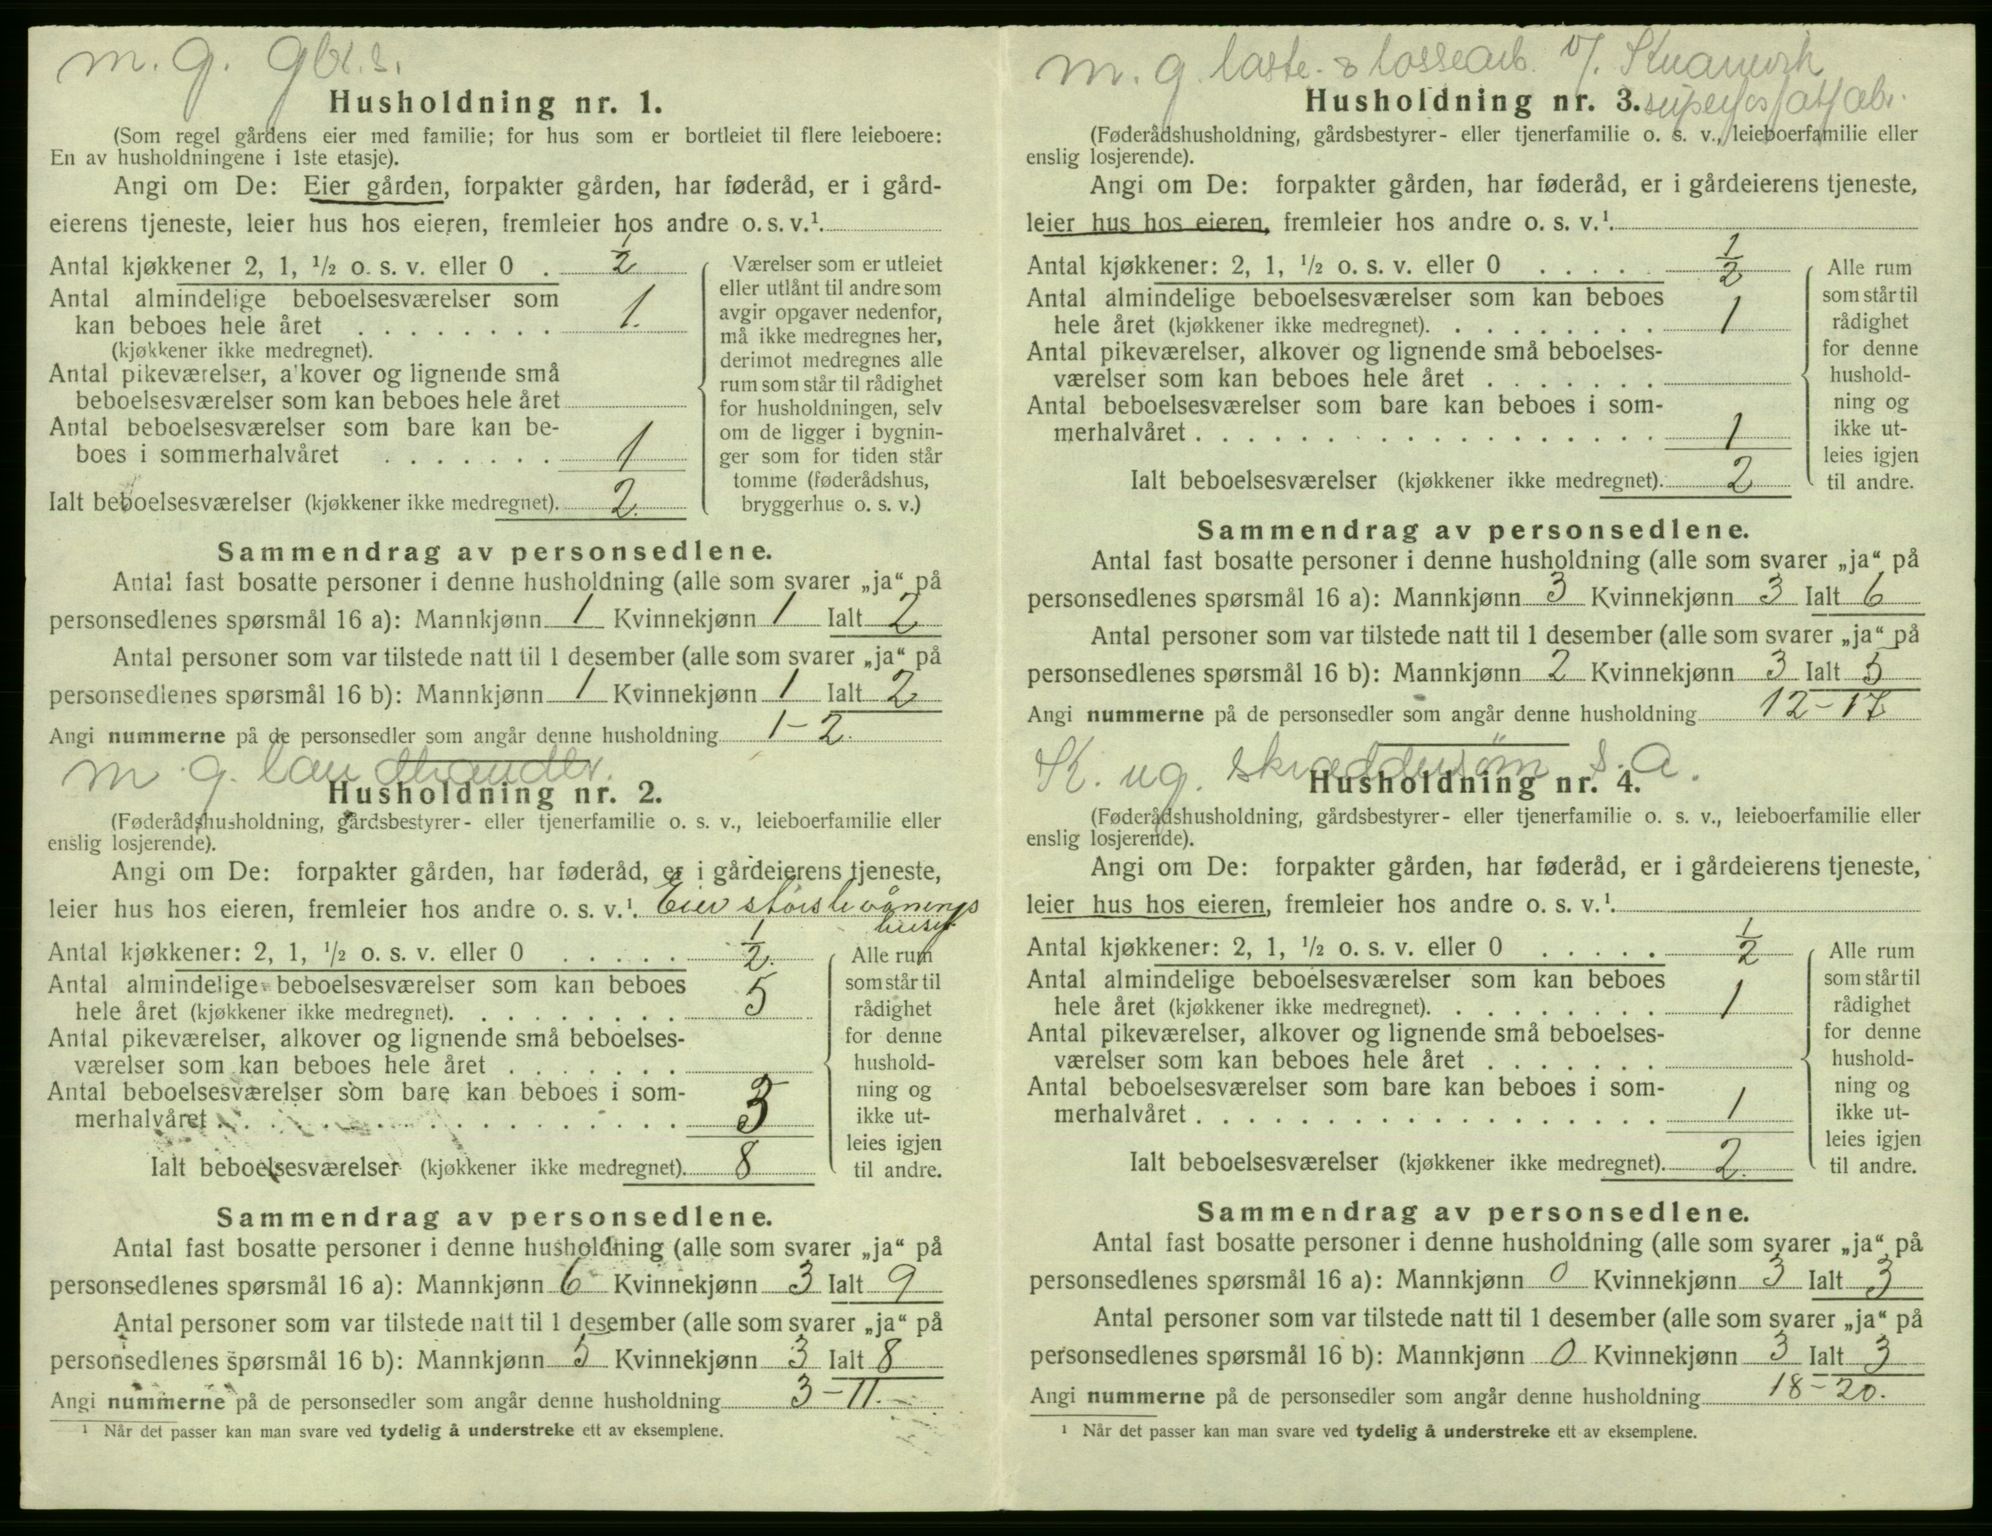 m. g. gbr. s.
Husholdning nr. 1.
(Som regel gårdens eier med familie; for hus som er bortleiet til flere leieboere:
En av husholdningene i 1ste etasje).
Angi om De: Eier gården, forpakter gården, har føderåd, er i gård-
eierens tjeneste, leier hus hos eieren, fremleier hos andre o. s. v.¹.
Antal kjøkkener 2, 1, ½ o. s. v. eller 0 . 1/2
Antal almindelige beboelsesværelser som
kan beboes hele året . . . . . . . . 1.
(kjøkkener ikke medregnet).
Antal pikeværelser, a'kover og lignende små
beboelsesværelser som kan beboes hele året
Antal beboelsesværelser som bare kan be-
boes i sommerhalvåret . . . . . . . 1
Ialt beboelsesværelser (kjøkkener ikke medregnet). 2.
Værelser som er utleiet
eller utlånt til andre som
avgir opgaver nedenfor,
må ikke medregnes her,
derimot medregnes alle
rum som står til rådighet
for husholdningen, selv
om de ligger i bygnin-
ger som for tiden står
tomme (føderådshus,
bryggerhus o. s. v.)
Sammendrag av personsedlene.
Antal fast bosatte personer i denne husholdning (alle som svarer „ja“ på
personsedlenes spørsmål 16 a): Mannkjønn 1 Kvinnekjønn 1 Ialt 2
Antal personer som var tilstede natt til 1 desember (alle som svarer „ja“ på
personsedlenes spørsmål 16 b): Mannkjønn 1 Kvinnekjønn 1 Ialt 2
Angi nummerne på de personsedler som angår denne husholdning 1-2.
m. g. landhandler.
Husholdning nr. 2.
(Føderådshusholdning, gårdsbestyrer- eller tjenerfamilie o. s. v., leieboerfamilie eller
enslig losjerende).
Angi om De: forpakter gården, har føderåd, er i gårdeierens tjeneste,
leier hus hos eieren, fremleier hos andre o. s. v.¹. Eier største vånings
huset
Antal kjøkkener: 2, 1, ½ o. s. v. eller 0 . . . . . 1/2.
Antal almindelige beboelsesværelser som kan beboes
hele året (kjøkkener ikke medregnet). . . . . . . . . 5
Antal pikeværelser, alkover og lignende små beboelses-
værelser som kan beboes hele året . . . . . . .
Antal beboelsesværelser som bare kan beboes i som-
merhalvåret . . . . . . . . . . . . . . . . . 3
Ialt beboelsesværelser (kjøkkener ikke medregnet). 8
Alle rum
som står til
rådighet
for denne
hushold-
ning og
ikke ut-
leies igjen
til andre.
Sammendrag av personsedlene.
Antal fast bosatte personer i denne husholdning (alle som svarer „ja“ på
personsedlenes spørsmål 16 a): Mannkjønn 6 Kvinnekjønn 3 Ialt 9
Antal personer som var tilstede natt til 1 desember (alle som svarer „ja“ på
personsedlenes spørsmål 16 b): Mannkjønn 5 Kvinnekjønn 3 Ialt 8
Angi nummerne på de personsedler som angår denne husholdning 3-11.
¹ Når det passer kan man svare ved tydelig å understreke ett av eksemplene.
m. g. laste- & lossearb. v/.
superfosfatfabr.
Husholdning nr. 3.
(Føderådshusholdning, gårdsbestyrer- eller tjenerfamilie o. s. v., leieboerfamilie eller
enslig losjerende).
Angi om De: forpakter gården, har føderåd, er i gårdeierens tjeneste,
leier hus hos eieren, fremleier hos andre o. s. v.¹.
Antal kjøkkener: 2, 1, ½ o. s. v. eller 0 . . . . . 1/2
Antal almindelige beboelsesværelser som kan beboes
hele året (kjøkkener ikke medregnet). . . . . . . . . 1
Antal pikeværelser, alkover og lignende små beboelses-
værelser som kan beboes hele året . . . . . . .
Antal beboelsesværelser som bare kan beboes i som-
merhalvåret . . . . . . . . . . . . . . . . . 1
Ialt beboelsesværelser (kjøkkener ikke medregnet). 2
Alle rum
som står til
rådighet
for denne
hushold-
ning og
ikke ut-
leies igjen
til andre.
Sammendrag av personsedlene.
Antal fast bosatte personer i denne husholdning (alle som svarer „ja“ på
personsedlenes spørsmål 16 a): Mannkjønn 3 Kvinnekjønn 3 Ialt 6
Antal personer som var tilstede natt til 1 desember (alle som svarer „ja“ på
personsedlenes spørsmål 16 b): Mannkjønn 2 Kvinnekjønn 3 Ialt 5
Angi nummerne på de personsedler som angår denne husholdning 12-17
K. ug. skræddersøm s. a.
Husholdning nr. 4.
(Føderådshusholdning, gårdsbestyrer- eller tjenerfamilie o. s. v., leieboerfamilie eller
enslig losjerende).
Angi om De: forpakter gården, har føderåd, er i gårdeierens tjeneste,
leier hus hos eieren, fremleier hos andre o. s. v.¹.
Antal kjøkkener: 2, 1, ½ o. s. v. eller 0 . . . . . 1/2
Antal almindelige beboelsesværelser som kan beboes
hele året (kjøkkener ikke medregnet). . . . . . . . . 1
Antal pikeværelser, alkover og lignende små beboelses-
værelser som kan beboes hele året . . . . . . .
Antal beboelsesværelser som bare kan beboes i som-
merhalvåret . . . . . . . . . . . . . . . . . 1
Ialt beboelsesværelser (kjøkkener ikke medregnet). 2.
Alle rum
som står til
rådighet
for denne
hushold-
ning og
ikke ut-
leies igjen
til andre.
Sammendrag av personsedlene.
Antal fast bosatte personer i denne husholdning (alle som svarer „ja“ på
personsedlenes spørsmål 16 a): Mannkjønn 0 Kvinnekjønn 3 Ialt 3
Antal personer som var tilstede natt til 1 desember (alle som svarer „ja“ på
personsedlenes spørsmål 16 b): Mannkjønn 0 Kvinnekjønn 3 Ialt 3
Angi nummerne på de personsedler som angår denne husholdning 18-20.
¹ Når det passer kan man svare ved tydelig å understreke ett av eksemplene.